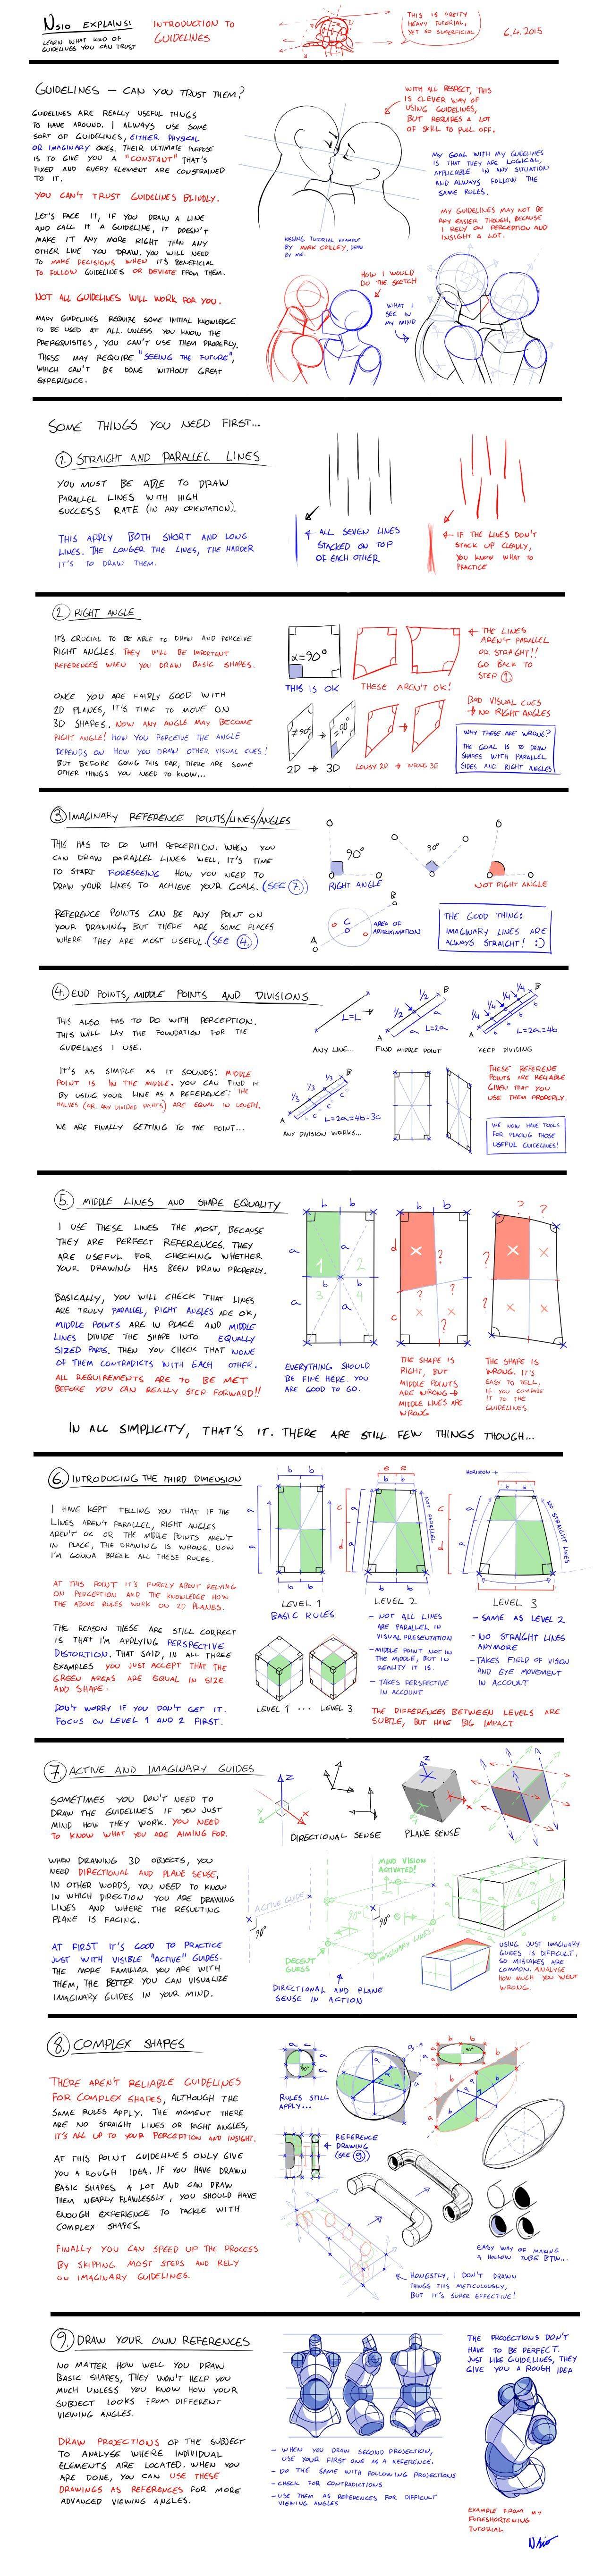 Nsio EXPLAINS!
LEARN WHAT KIND OF
GUIDELINES YOU CAN TRUST
INTRODUCTION TO
GUIDELINES
THIS IS PRETTY
HEAVY TUTORIAL,
YET SO SUPERFICIAL
6.4.2015
GUIDELINES – CAN YOU TRUST THEM?
GUIDELINES ARE REALLY USEFUL THINGS
TO HAVE AROUND. I ALWAYS USE SOME
SORT OF GUIDELINES, EITHER PHYSICAL
OR IMAGINARY ONES. THEIR ULTIMATE PURPOSE
IS TO GIVE YOU A "CONSTANT" THAT'S
FIXED AND EVERY ELEMENT ARE CONSTRAINED
TO IT.
YOU CAN'T TRUST GUIDELINES BLINDLY.
LET'S FACE IT, IF YOU DRAW A LINE
AND CALL IT A GUIDELINE, IT DOESN'T
MAKE IT ANY MORE RIGHT THAN ANY
OTHER LINE YOU DRAW. YOU WILL NEED
TO MAKE DECISIONS WHEN IT'S BENEFICIAL
TO FOLLOW GUIDELINES OR DEVIATE FROM THEM.
NOT ALL GUIDELINES WILL WORK FOR YOU.
MANY GUIDELINES REQUIRE SOME INITIAL KNOWLEDGE
TO BE USED AT ALL. UNLESS YOU KNOW THE
PREREQUISITES, YOU CAN'T USE THEM PROPERLY.
THESE MAY REQUIRE "SEEING THE FUTURE",
WHICH CAN'T BE DONE WITHOUT GREAT
EXPERIENCE.
WITH ALL RESPECT, THIS
IS CLEVER WAY OF
USING GUIDELINES,
BUT REQUIRES A LOT
OF SKILL TO PULL OFF.
MY GOAL WITH MY GUIDELINES
IS THAT THEY ARE LOGICAL,
APPLICABLE IN ANY SITUATION
AND ALWAYS FOLLOW THE
SAME RULES.
MY GUIDELINES MAY NOT BE
ANY EASIER THOUGH, BECAUSE
I RELY ON PERCEPTION AND
INSIGHT A LOT.
KISSING TUTORIAL EXAMPLE
BY MARK CRILLEY, DRAWN
BY ME.
HOW I WOULD
DO THE SKETCH
WHAT I
SEE IN
MY MIND
SOME THINGS YOU NEED FIRST...
1. STRAIGHT AND PARALLEL LINES
YOU MUST BE ABLE TO DRAW
PARALLEL LINES WITH HIGH
SUCCESS RATE (IN ANY ORIENTATION).
THIS APPLY BOTH SHORT AND LONG
LINES. THE LONGER THE LINES, THE HARDER
IT'S TO DRAW THEM.
ALL SEVEN LINES
STACKED ON TOP
OF EACH OTHER
IF THE LINES DON'T
STACK UP CLEANLY,
YOU KNOW WHAT TO
PRACTICE
2. RIGHT ANGLE
IT'S CRUCIAL TO BE ABLE TO DRAW AND PERCEIVE
RIGHT ANGLES. THEY WILL BE IMPORTANT
REFERENCES WHEN YOU DRAW BASIC SHAPES.
ONCE YOU ARE FAIRLY GOOD WITH
2D PLANES, IT'S TIME TO MOVE ON
3D SHAPES. NOW ANY ANGLE MAY BECOME
RIGHT ANGLE! HOW YOU PERCEIVE THE ANGLE
DEPENDS ON HOW YOU DRAW OTHER VISUAL CUES!
BUT BEFORE GOING THIS FAR, THERE ARE SOME
OTHER THINGS YOU NEED TO KNOW...
α=90°
THIS IS OK
THESE AREN'T OK!
THE LINES
AREN'T PARALLEL
OR STRAIGHT!!
GO BACK TO
STEP 1
≠90°
=90°
2D → 3D
LOUSY 2D → WRONG 3D
BAD VISUAL CUES
→ NO RIGHT ANGLES
WHY THESE ARE WRONG?
THE GOAL IS TO DRAW
SHAPES WITH PARALLEL
SIDES AND RIGHT ANGLES
3 IMAGINARY REFERENCE POINTS/LINES/ANGLES
THIS HAS TO DO WITH PERCEPTION. WHEN YOU
CAN DRAW PARALLEL LINES WELL, IT'S TIME
TO START FORESEEING HOW YOU NEED TO
DRAW YOUR LINES TO ACHIEVE YOUR GOALS. (SEE 7.)
REFERENCE POINTS CAN BE ANY POINT ON
YOUR DRAWING, BUT THERE ARE SOME PLACES
WHERE THEY ARE MOST USEFUL. (SEE 4.)
90°
RIGHT ANGLE
90°
NOT RIGHT ANGLE
A
B
C
AREA OF
APPROXIMATION
THE GOOD THING:
IMAGINARY LINES ARE
ALWAYS STRAIGHT! :)
4. END POINTS, MIDDLE POINTS AND DIVISIONS
THIS ALSO HAS TO DO WITH PERCEPTION.
THIS WILL LAY THE FOUNDATION FOR THE
GUIDELINES I USE.
IT'S AS SIMPLE AS IT SOUNDS: MIDDLE
POINT IS IN THE MIDDLE. YOU CAN FIND IT
BY USING YOUR LINE AS A REFERENCE: THE
HALVES (OR ANY DIVIDED PARTS) ARE EQUAL IN LENGTH.
WE ARE FINALLY GETTING TO THE POINT...
L=L
ANY LINE...
1/2 1/2
A
B
L=2a
FIND MIDDLE POINT
1/4 1/4 1/4 1/4
A
B
L=2a=4b
KEEP DIVIDING
1/3 1/3 1/3
A
B
L=2a=4b=3c
ANY DIVISION WORKS...
THESE REFERENCE
POINTS ARE RELIABLE
GIVEN THAT YOU
USE THEM PROPERLY.
WE NOW HAVE TOOLS
FOR PLACING THOSE
USEFUL GUIDELINES!
5. MIDDLE LINES AND SHAPE EQUALITY
I USE THESE LINES THE MOST, BECAUSE
THEY ARE PERFECT REFERENCES. THEY
ARE USEFUL FOR CHECKING WHETHER
YOUR DRAWING HAS BEEN DRAW PROPERLY.
BASICALLY, YOU WILL CHECK THAT LINES
ARE TRULY PARALLEL, RIGHT ANGLES ARE OK,
MIDDLE POINTS ARE IN PLACE AND MIDDLE
LINES DIVIDE THE SHAPE INTO EQUALLY
SIZED PARTS. THEN YOU CHECK THAT NONE
OF THEM CONTRADICTS WITH EACH OTHER.
ALL REQUIREMENTS ARE TO BE MET
BEFORE YOU CAN REALLY STEP FORWARD!!
b b
a
a
1 2
3 4
EVERYTHING SHOULD
BE FINE HERE. YOU
ARE GOOD TO GO.
b b
d
c
THE SHAPE IS
RIGHT, BUT
MIDDLE POINTS
ARE WRONG →
MIDDLE LINES ARE
WRONG
? ?
THE SHAPE IS
WRONG. IT'S
EASY TO TELL,
IF YOU COMPARE
IT TO THE
GUIDELINES
IN ALL SIMPLICITY, THAT'S IT. THERE ARE STILL FEW THINGS THOUGH...
6. INTRODUCING THE THIRD DIMENSION
I HAVE KEPT TELLING YOU THAT IF THE
LINES AREN'T PARALLEL, RIGHT ANGLES
AREN'T OK OR THE MIDDLE POINTS AREN'T
IN PLACE, THE DRAWING IS WRONG. NOW
I'M GONNA BREAK ALL THESE RULES.
AT THIS POINT IT'S PURELY ABOUT RELYING
ON PERCEPTION AND THE KNOWLEDGE HOW
THE ABOVE RULES WORK ON 2D PLANES.
THE REASON THESE ARE STILL CORRECT
IS THAT I'M APPLYING PERSPECTIVE
DISTORTION. THAT SAID, IN ALL THREE
EXAMPLES YOU JUST ACCEPT THAT THE
GREEN AREAS ARE EQUAL IN SIZE
AND SHAPE.
DON'T WORRY IF YOU DON'T GET IT.
FOCUS ON LEVEL 1 AND 2 FIRST.
LEVEL 1
BASIC RULES
NOT PARALLEL
LEVEL 2
- NOT ALL LINES
ARE PARALLEL IN
VISUAL PRESENTATION
- MIDDLE POINT NOT IN
THE MIDDLE, BUT IN
REALITY IT IS.
- TAKES PERSPECTIVE
IN ACCOUNT
HORIZON →
NO STRAIGHT LINES
LEVEL 3
- SAME AS LEVEL 2
- NO STRAIGHT LINES
ANYMORE
- TAKES FIELD OF VISION
AND EYE MOVEMENT
IN ACCOUNT
LEVEL 1 ... LEVEL 3
THE DIFFERENCES BETWEEN LEVELS ARE
SUBTLE, BUT HAVE BIG IMPACT
7 ACTIVE AND IMAGINARY GUIDES
SOMETIMES YOU DON'T NEED TO
DRAW THE GUIDELINES IF YOU JUST
MIND HOW THEY WORK. YOU NEED
TO KNOW WHAT YOU ARE AIMING FOR.
WHEN DRAWING 3D OBJECTS, YOU
NEED DIRECTIONAL AND PLANE SENSE,
IN OTHER WORDS, YOU NEED TO KNOW
IN WHICH DIRECTION YOU ARE DRAWING
LINES AND WHERE THE RESULTING
PLANE IS FACING.
AT FIRST IT'S GOOD TO PRACTICE
JUST WITH VISIBLE "ACTIVE" GUIDES.
THE MORE FAMILIAR YOU ARE WITH
THEM, THE BETTER YOU CAN VISUALIZE
IMAGINARY GUIDES IN YOUR MIND.
Z
Y
X
DIRECTIONAL SENSE
Z
PLANE SENSE
ACTIVE GUIDE
90°
MIND VISION
ACTIVATED!
90°
IMAGINARY LINES!
DECENT
GUESS
DIRECTIONAL AND PLANE
SENSE IN ACTION
USING JUST IMAGINARY
GUIDES IS DIFFICULT,
SO MISTAKES ARE
COMMON. ANALYSE
HOW MUCH YOU WENT
WRONG.
8. COMPLEX SHAPES
THERE AREN'T RELIABLE GUIDELINES
FOR COMPLEX SHAPES, ALTHOUGH THE
SAME RULES APPLY. THE MOMENT THERE
ARE NO STRAIGHT LINES OR RIGHT ANGLES,
IT'S ALL UP TO YOUR PERCEPTION AND INSIGHT.
AT THIS POINT GUIDELINES ONLY GIVE
YOU A ROUGH IDEA. IF YOU HAVE DRAWN
BASIC SHAPES A LOT AND CAN DRAW
THEM NEARLY FLAWLESSLY, YOU SHOULD HAVE
ENOUGH EXPERIENCE TO TACKLE WITH
COMPLEX SHAPES.
FINALLY YOU CAN SPEED UP THE PROCESS
BY SKIPPING MOST STEPS AND RELY
ON IMAGINARY GUIDELINES.
RULES STILL
APPLY...
REFERENCE
DRAWING
(SEE 9.)
EASY WAY OF MAKING
A HOLLOW TUBE BTW...
HONESTLY, I DON'T DRAWN
THINGS THIS METICULOUSLY,
BUT IT'S SUPER EFFECTIVE!
9. DRAW YOUR OWN REFERENCES
NO MATTER HOW WELL YOU DRAW
BASIC SHAPES, THEY WON'T HELP YOU
MUCH UNLESS YOU KNOW HOW YOUR
SUBJECT LOOKS FROM DIFFERENT
VIEWING ANGLES.
DRAW PROJECTIONS OF THE SUBJECT
TO ANALYSE WHERE INDIVIDUAL
ELEMENTS ARE LOCATED. WHEN YOU
ARE DONE, YOU CAN USE THESE
DRAWINGS AS REFERENCES FOR MORE
ADVANCED VIEWING ANGLES.
- WHEN YOU DRAW SECOND PROJECTION,
USE YOUR FIRST ONE AS A REFERENCE.
- DO THE SAME WITH FOLLOWING PROJECTIONS
- CHECK FOR CONTRADICTIONS
- USE THEM AS REFERENCES FOR DIFFICULT
VIEWING ANGLES
THE PROJECTIONS DON'T
HAVE TO BE PERFECT.
JUST LIKE GUIDELINES, THEY
GIVE YOU A ROUGH IDEA
EXAMPLE FROM MY
FORESHORTENING
TUTORIAL
Nsio